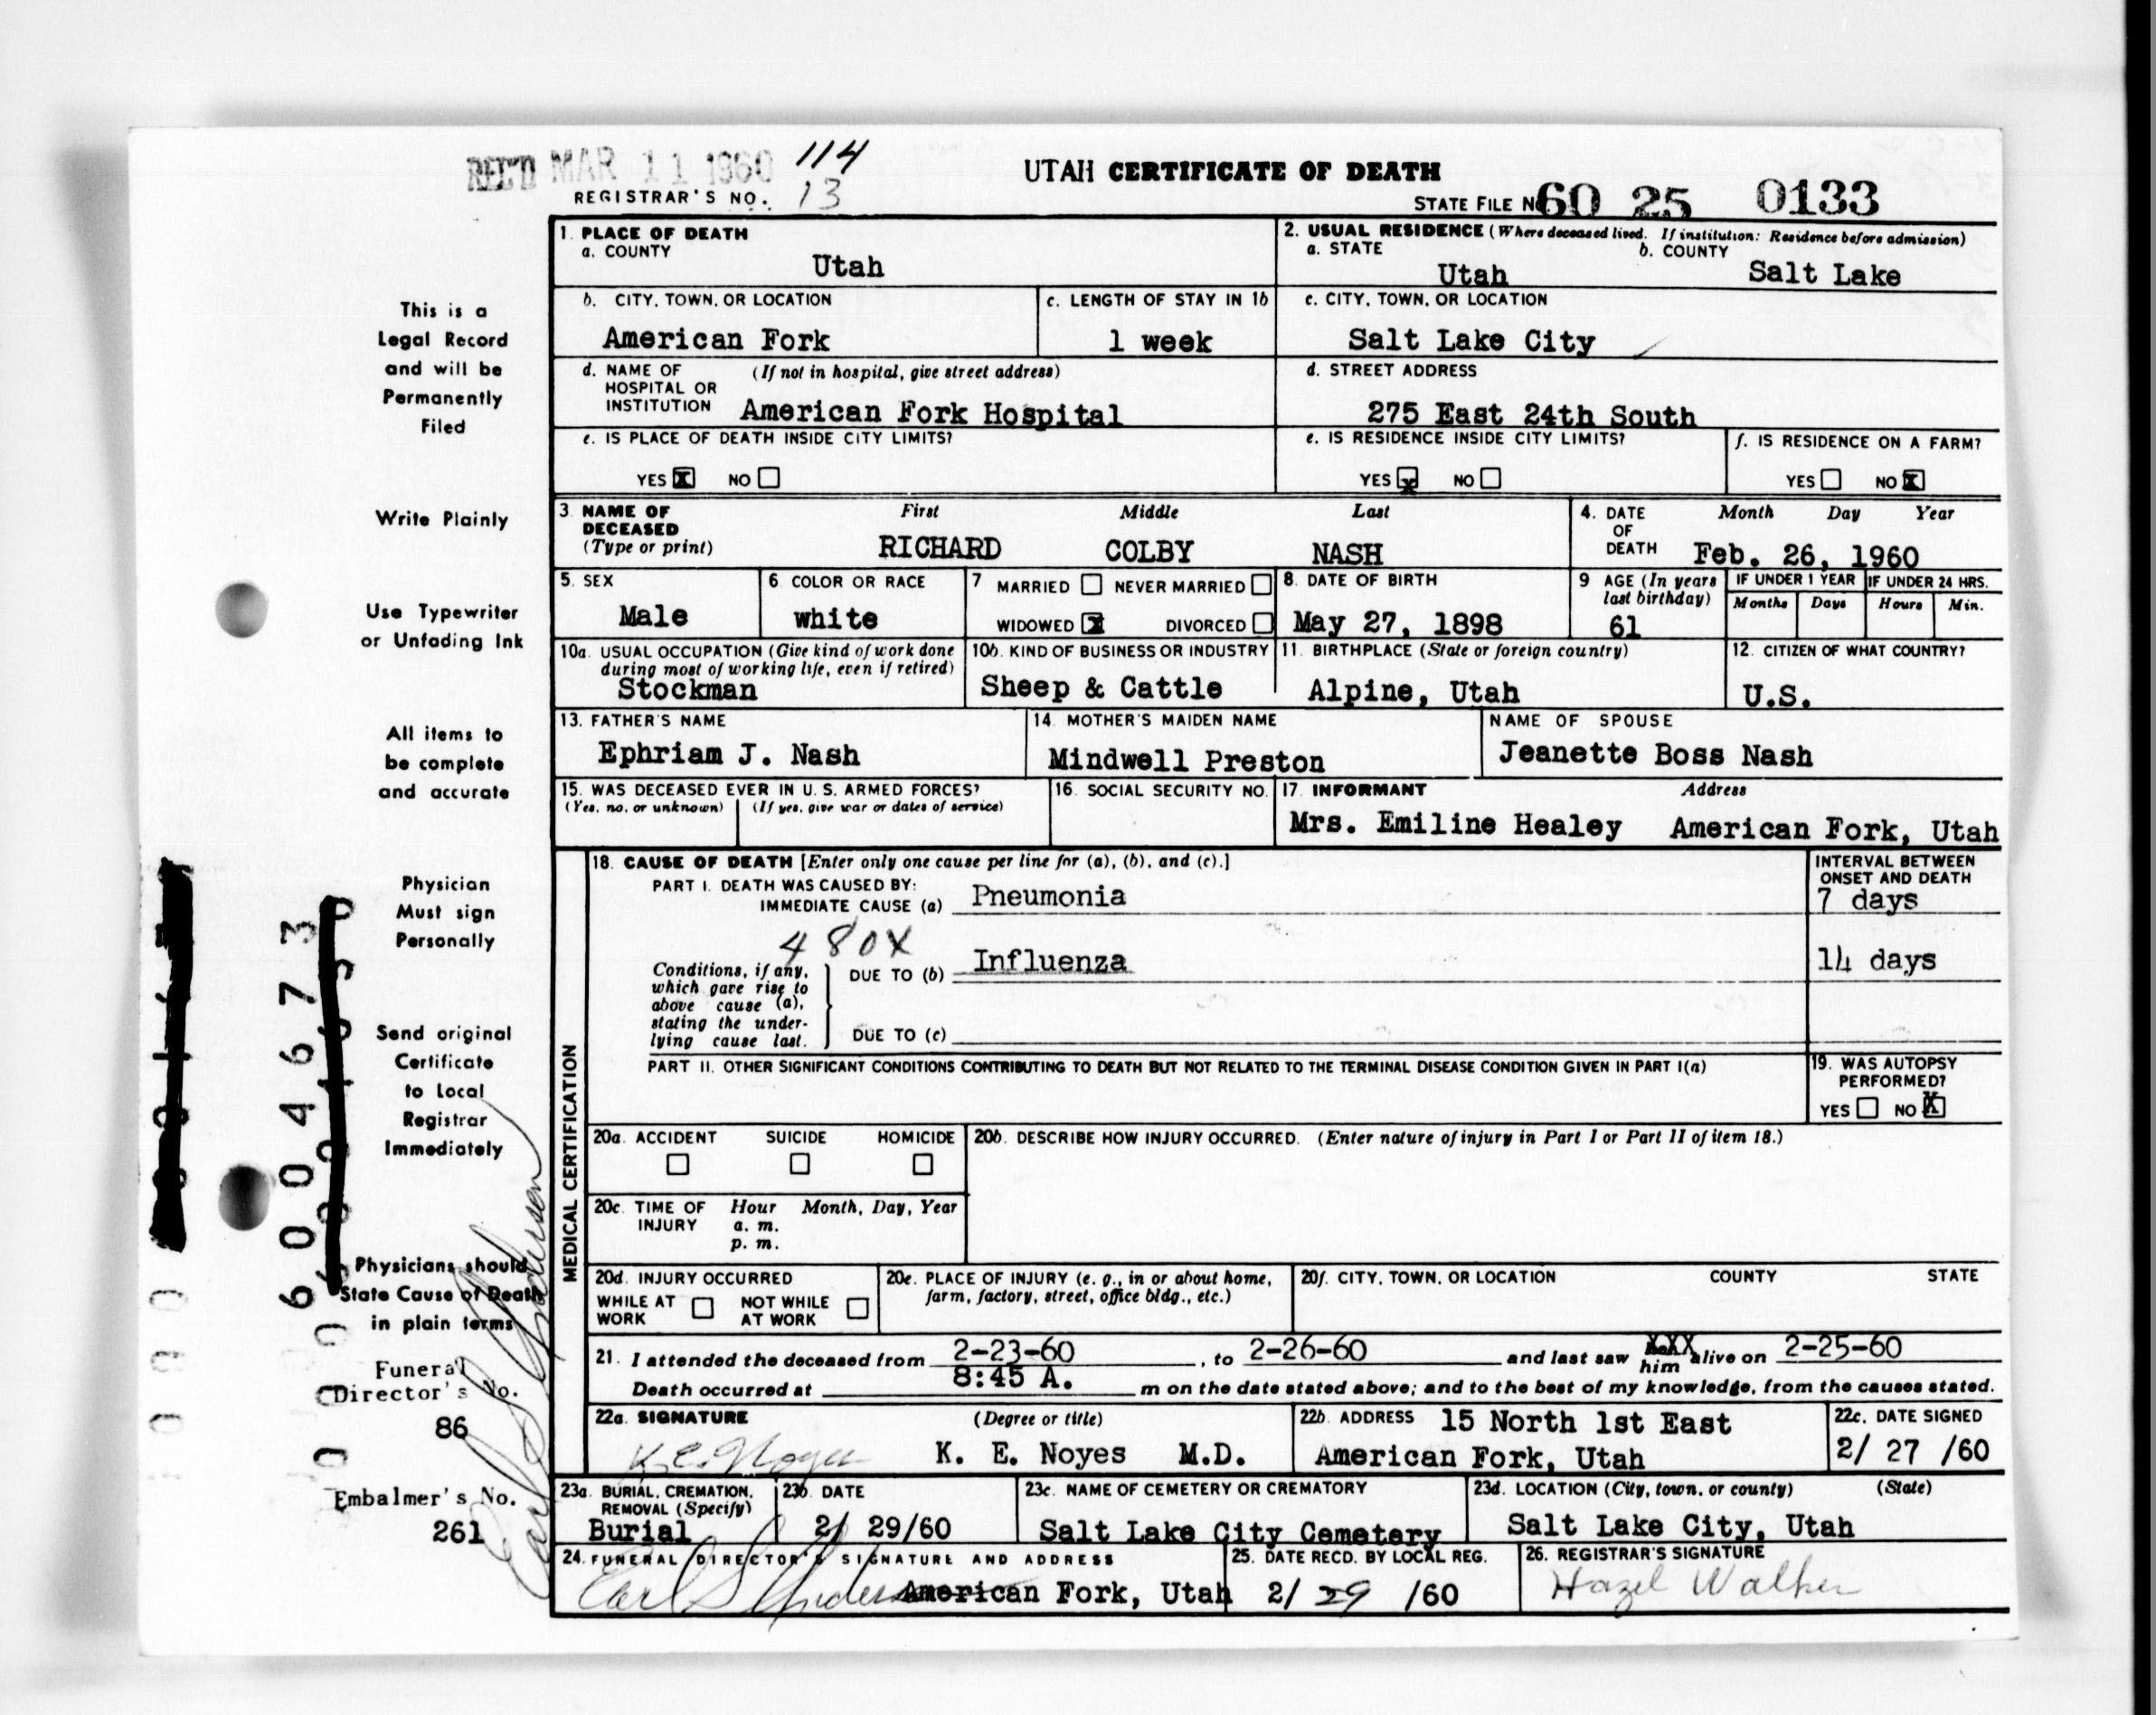 REC'D MAR 11 1960 114
UTAH CERTIFICATE OF DEATH
REGISTRAR'S NO. 13
STATE FILE NO 60 25 0133
1. PLACE OF DEATH
a. COUNTY
Utah
2. USUAL RESIDENCE (Where deceased lived. If institution: Residence before admission)
a. STATE b. COUNTY
Utah Salt Lake
b. CITY, TOWN, OR LOCATION
American Fork
c. LENGTH OF STAY IN 1b
1 week
c. CITY, TOWN, OR LOCATION
Salt Lake City
d. NAME OF (If not in hospital, give street address)
HOSPITAL OR
INSTITUTION American Fork Hospital
d. STREET ADDRESS
275 East 24th South
e. IS PLACE OF DEATH INSIDE CITY LIMITS?
YES X NO
e. IS RESIDENCE INSIDE CITY LIMITS?
YES x NO
f. IS RESIDENCE ON A FARM?
YES NO X
3 NAME OF DECEASED (Type or print)
First Middle Last
RICHARD COLBY NASH
4. DATE OF DEATH
Month Day Year
Feb. 26, 1960
5. SEX
Male
6 COLOR OR RACE
white
7 MARRIED NEVER MARRIED
WIDOWED X DIVORCED
8. DATE OF BIRTH
May 27, 1898
9 AGE (In years last birthday)
61
IF UNDER 1 YEAR IF UNDER 24 HRS.
Months Days Hours Min.
10a. USUAL OCCUPATION (Give kind of work done
during most of working life, even if retired)
Stockman
10b. KIND OF BUSINESS OR INDUSTRY
Sheep & Cattle
11. BIRTHPLACE (State or foreign country)
Alpine, Utah
12. CITIZEN OF WHAT COUNTRY?
U.S.
13. FATHER'S NAME
Ephriam J. Nash
14. MOTHER'S MAIDEN NAME
Mindwell Preston
NAME OF SPOUSE
Jeanette Boss Nash
15. WAS DECEASED EVER IN U. S. ARMED FORCES?
(Yes, no, or unknown) (If yes, give war or dates of service)
16. SOCIAL SECURITY NO.
17. INFORMANT Address
Mrs. Emiline Healey American Fork, Utah
MEDICAL CERTIFICATION
18. CAUSE OF DEATH [Enter only one cause per line for (a), (b), and (c).]
INTERVAL BETWEEN
ONSET AND DEATH
PART I. DEATH WAS CAUSED BY:
IMMEDIATE CAUSE (a) Pneumonia 7 days
480X
Conditions, if any,
which gave rise to
above cause (a),
stating the under-
lying cause last.
DUE TO (b) Influenza 14 days
DUE TO (c)
PART II. OTHER SIGNIFICANT CONDITIONS CONTRIBUTING TO DEATH BUT NOT RELATED TO THE TERMINAL DISEASE CONDITION GIVEN IN PART I(a)
19. WAS AUTOPSY
PERFORMED?
YES NO X
20a. ACCIDENT SUICIDE HOMICIDE
20b. DESCRIBE HOW INJURY OCCURRED. (Enter nature of injury in Part I or Part II of item 18.)
20c. TIME OF INJURY Hour Month, Day, Year
a. m.
p. m.
20d. INJURY OCCURRED
WHILE AT WORK NOT WHILE AT WORK
20e. PLACE OF INJURY (e. g., in or about home,
farm, factory, street, office bldg., etc.)
20f. CITY, TOWN, OR LOCATION COUNTY STATE
21. I attended the deceased from 2-23-60, to 2-26-60 and last saw XXX him alive on 2-25-60
Death occurred at 8:45 A. m on the date stated above; and to the best of my knowledge, from the causes stated.
22a. SIGNATURE (Degree or title)
K. E. Noyes K. E. Noyes M.D.
22b. ADDRESS 15 North 1st East
American Fork, Utah
22c. DATE SIGNED
2/ 27 /60
23a. BURIAL, CREMATION,
REMOVAL (Specify)
Burial
23b. DATE
2/ 29/60
23c. NAME OF CEMETERY OR CREMATORY
Salt Lake City Cemetery
23d. LOCATION (City, town, or county) (State)
Salt Lake City, Utah
24. FUNERAL DIRECTOR'S SIGNATURE AND ADDRESS
Earl S Anderson American Fork, Utah
25. DATE RECD. BY LOCAL REG.
2/ 29 /60
26. REGISTRAR'S SIGNATURE
Hazel Walker
This is a
Legal Record
and will be
Permanently
Filed
Write Plainly
Use Typewriter
or Unfading Ink
All items to
be complete
and accurate
Physician
Must sign
Personally
Send original
Certificate
to Local
Registrar
Immediately
Physicians should
State Cause of Death
in plain terms
Funeral
Director's No.
86
Embalmer's No.
261
6004673